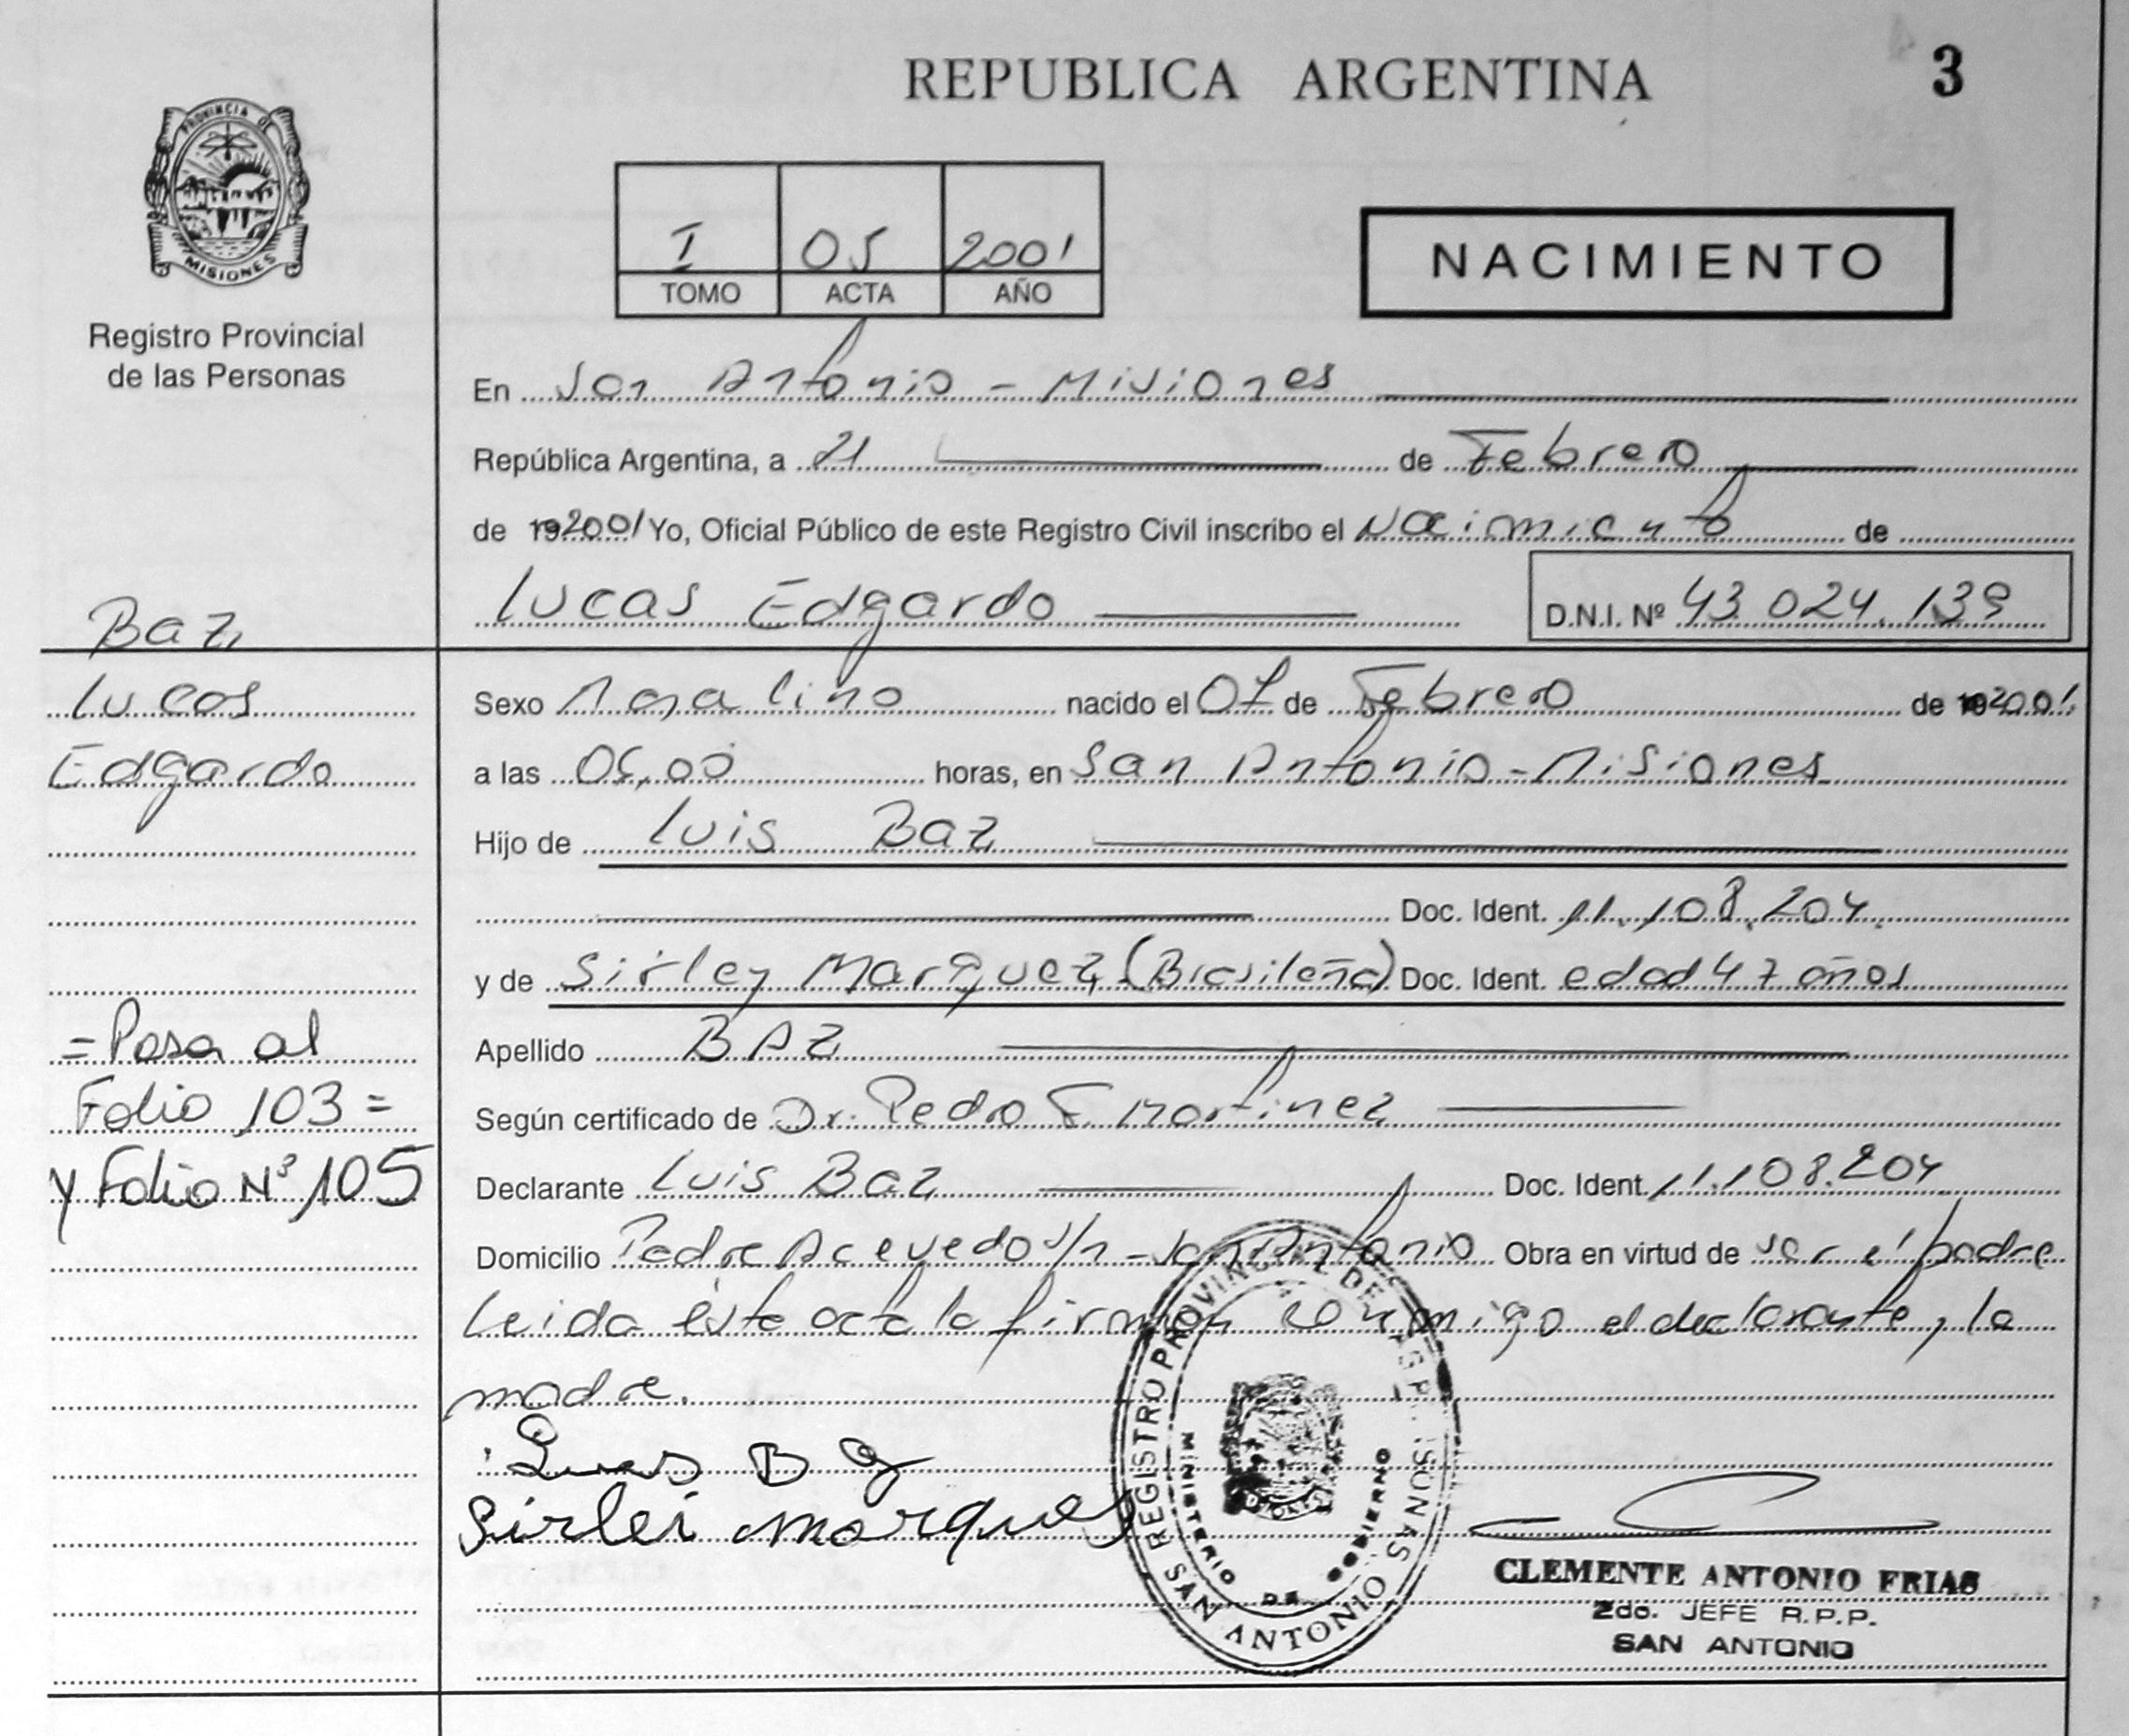 REPUBLICA ARGENTINA
3
PROVINCIA DE
MISIONES
Registro Provincial
de las Personas
I 05 2001
TOMO ACTA AÑO
NACIMIENTO
En San Antonio - Misiones
República Argentina, a 21 de Febrero
de 192001 Yo, Oficial Público de este Registro Civil inscribo el Nacimiento de
Lucas Edgardo
D.N.I. Nº 43.024.139
Baz,
Lucas
Edgardo
Sexo Masculino nacido el 07 de Febrero de 192001
a las 05,00 horas, en San Antonio - Misiones
Hijo de Luis Baz
Doc. Ident. 11.108.204.
y de Sirley Marquez (Brasileña) Doc. Ident. edad 47 años
Apellido BAZ
Según certificado de Dr. Pedro F. Martinez
Declarante Luis Baz Doc. Ident. 11.108.204
Domicilio Padre Acevedo s/n - San Antonio Obra en virtud de ser el padre
Leida ésta acta la firman conmigo el declarante, la
madre.
= Pasa al
Folio 103 =
y Folio Nº 105
Sirlei Marques
REGISTRO PROVINCIAL DE
SAN ANTONIO
MINISTERIO DE GOBIERNO
CLEMENTE ANTONIO FRIAS
2do. JEFE R.P.P.
SAN ANTONIO